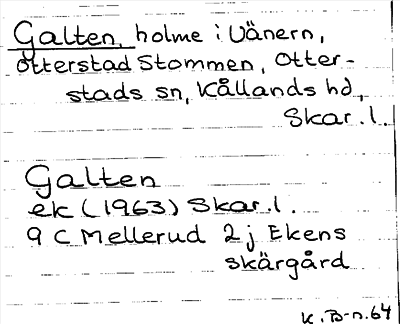 Galten, holme i Vänern,
Otterstad Stommen, Otter-
stads sn, Kållands hd,
Skar.l.
Galten
ek (1963) Skar.l.
9 C Mellerud 2 j Ekens
skärgård
K.B-n.64